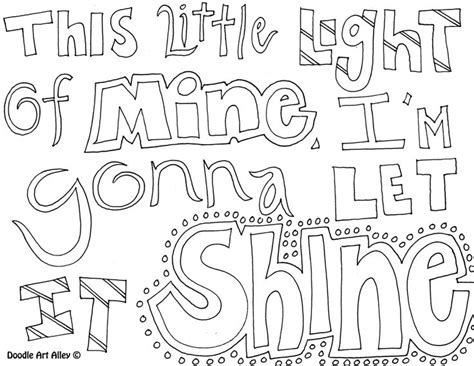 This Little Light
Of Mine, I'm
gonna LET
IT Shine
Doodle Art Alley ©